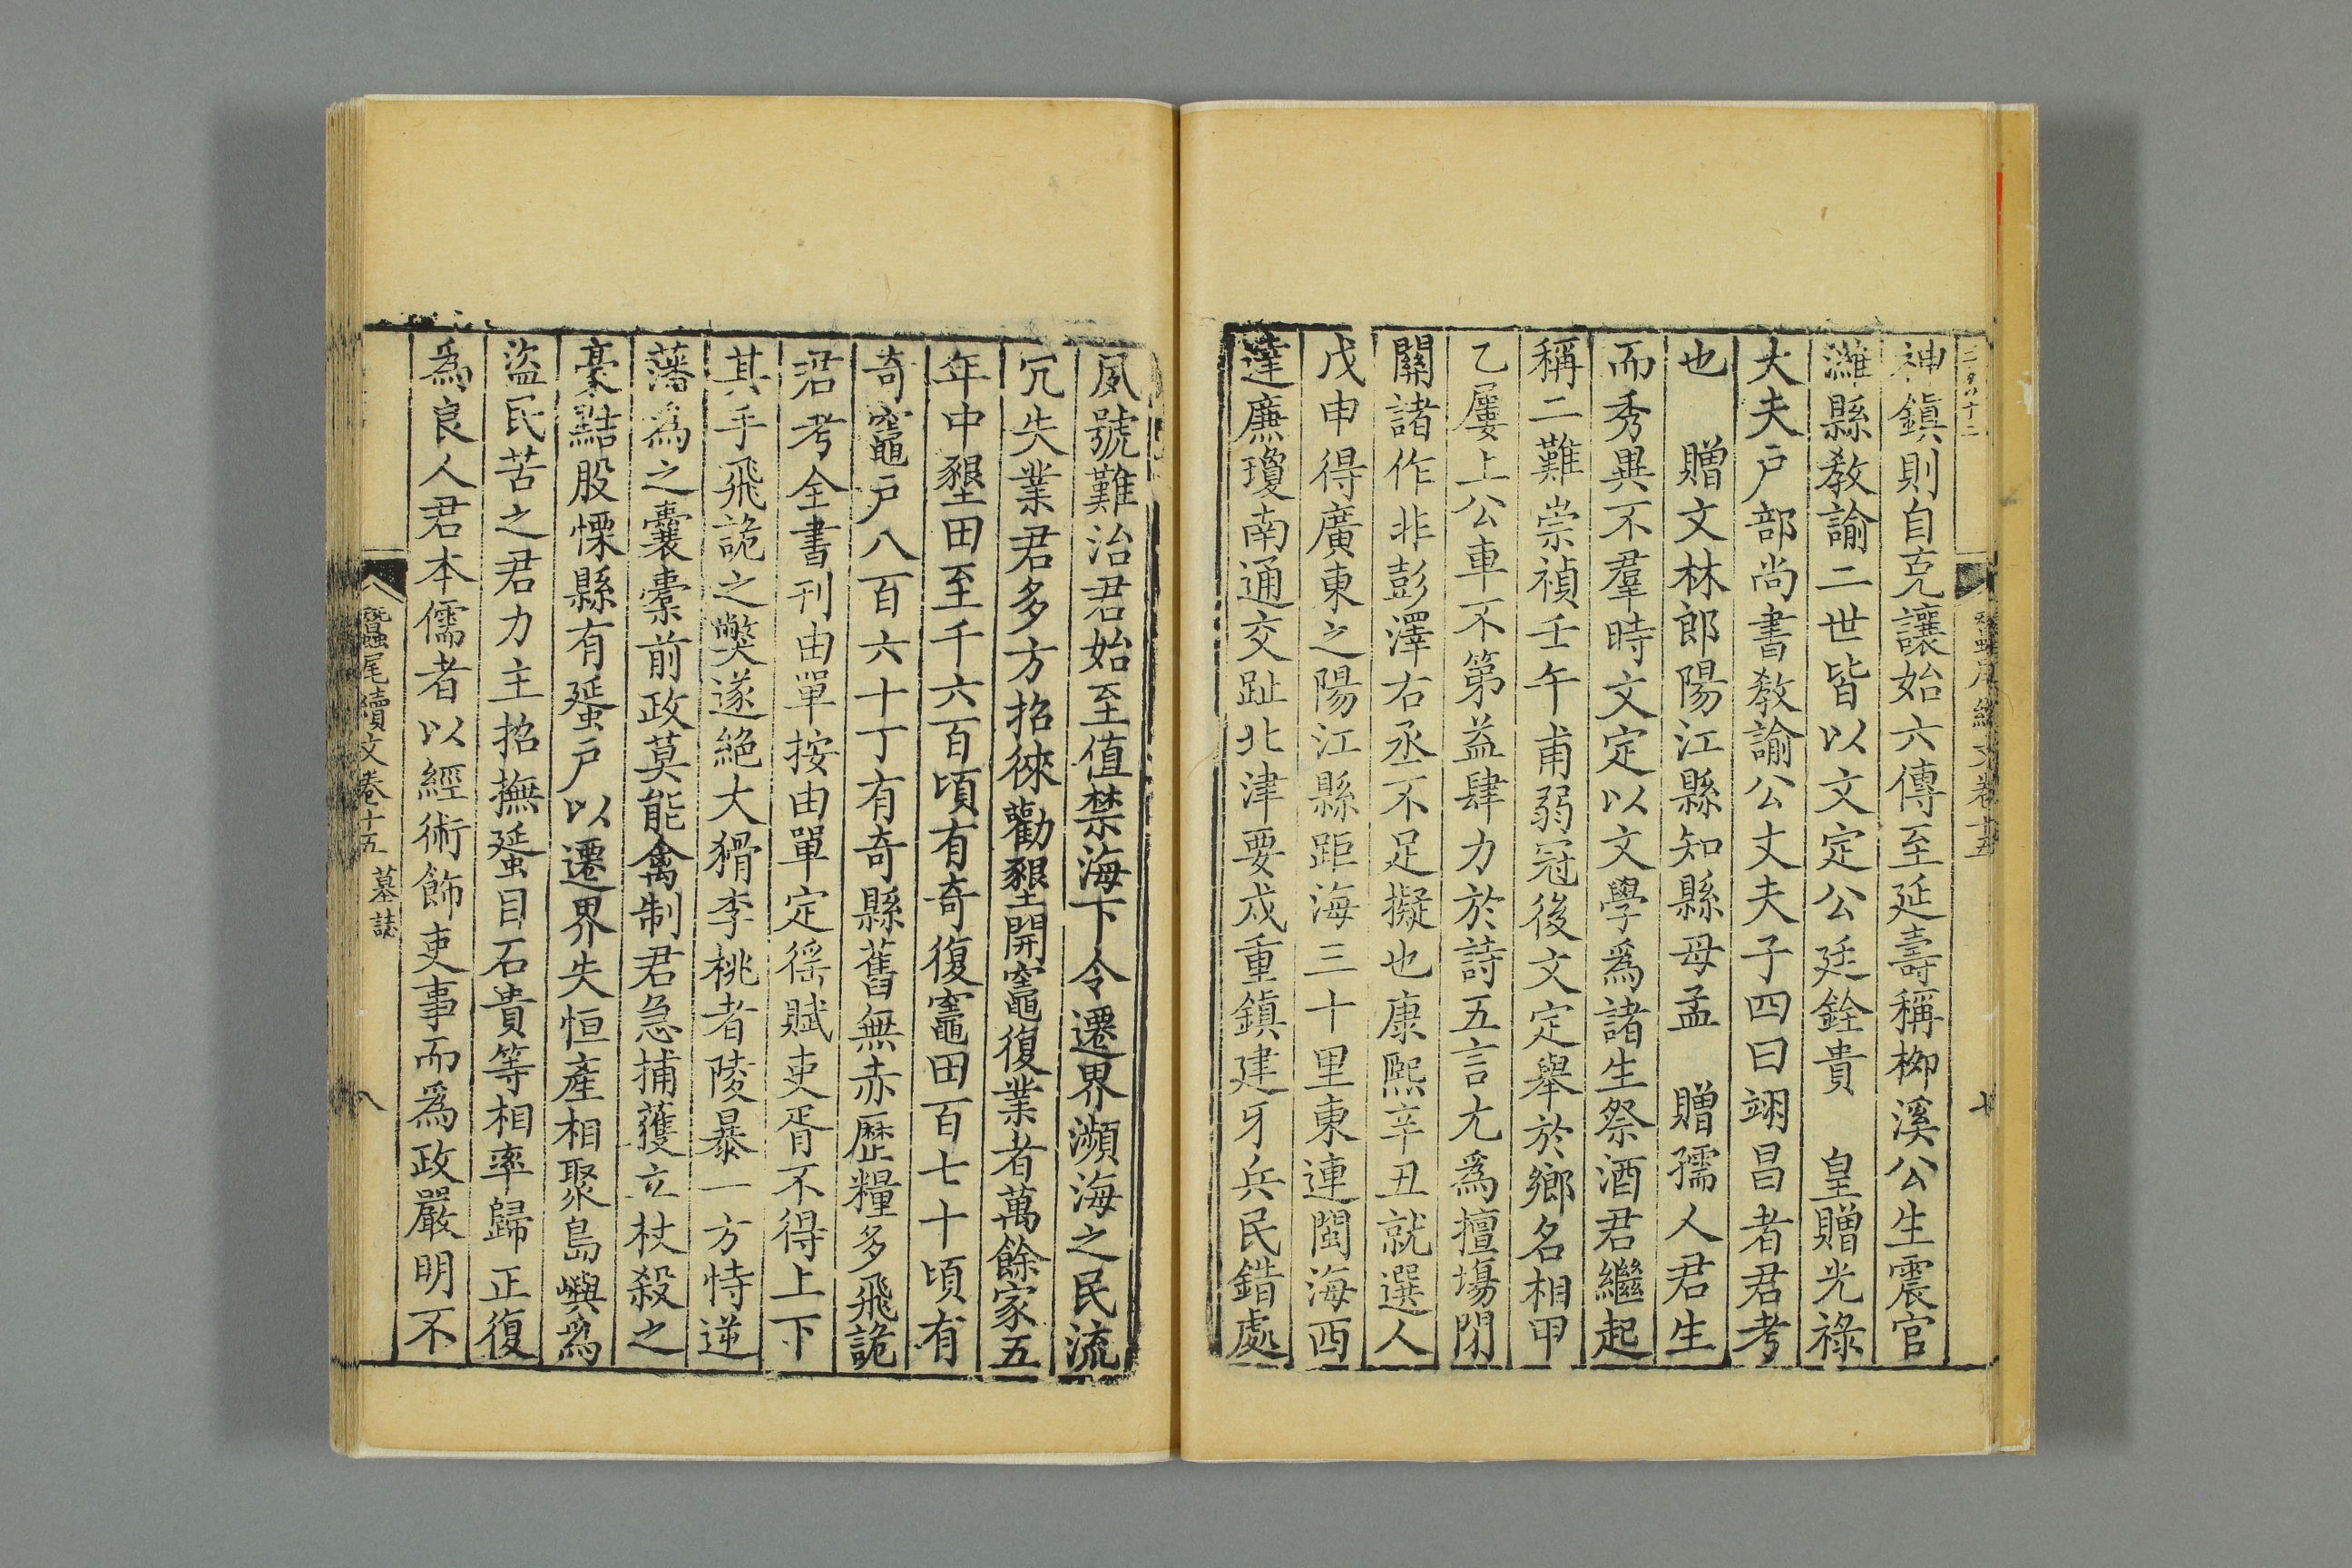 蠶尾續文卷十五
七
神鎮則自克讓始六傳至延壽稱柳溪公生震官
濰縣教諭二世皆以文定公廷銓貴　皇贈光祿
大夫戶部尚書教諭公丈夫子四曰翊昌者君考
也　贈文林郎陽江縣知縣母孟　贈孺人君生
而秀異不羣時文定以文學爲諸生祭酒君繼起
稱二難崇禎壬午甫弱冠後文定舉於鄉名相甲
乙屢上公車不第益肆力於詩五言尤爲擅場閉
關諸作非彭澤右丞不足擬也康熙辛丑就選人
戊申得廣東之陽江縣距海三十里東連閩海西
達廉瓊南通交趾北津要戍重鎮建牙兵民錯處
夙號難治君始至值禁海下令遷界瀕海之民流
冗失業君多方招徠勸墾開竈復業者萬餘家五
年中墾田至千六百頃有奇復竈田百七十頃有
奇竈戶八百六十丁有奇縣舊無赤歷糧多飛詭
君考全書刊由單按由單定徭賦吏胥不得上下
其手飛詭之獘遂絕大猾李桃者陵暴一方恃逆
藩爲之囊橐前政莫能禽制君急捕獲立杖殺之
豪黠股慄縣有蜑戶以遷界失恒產相聚島嶼爲
盜民苦之君力主招撫蜑目石貴等相率歸正復
爲良人君本儒者以經術飾吏事而爲政嚴明不
蠶尾續文卷十五　墓誌
八